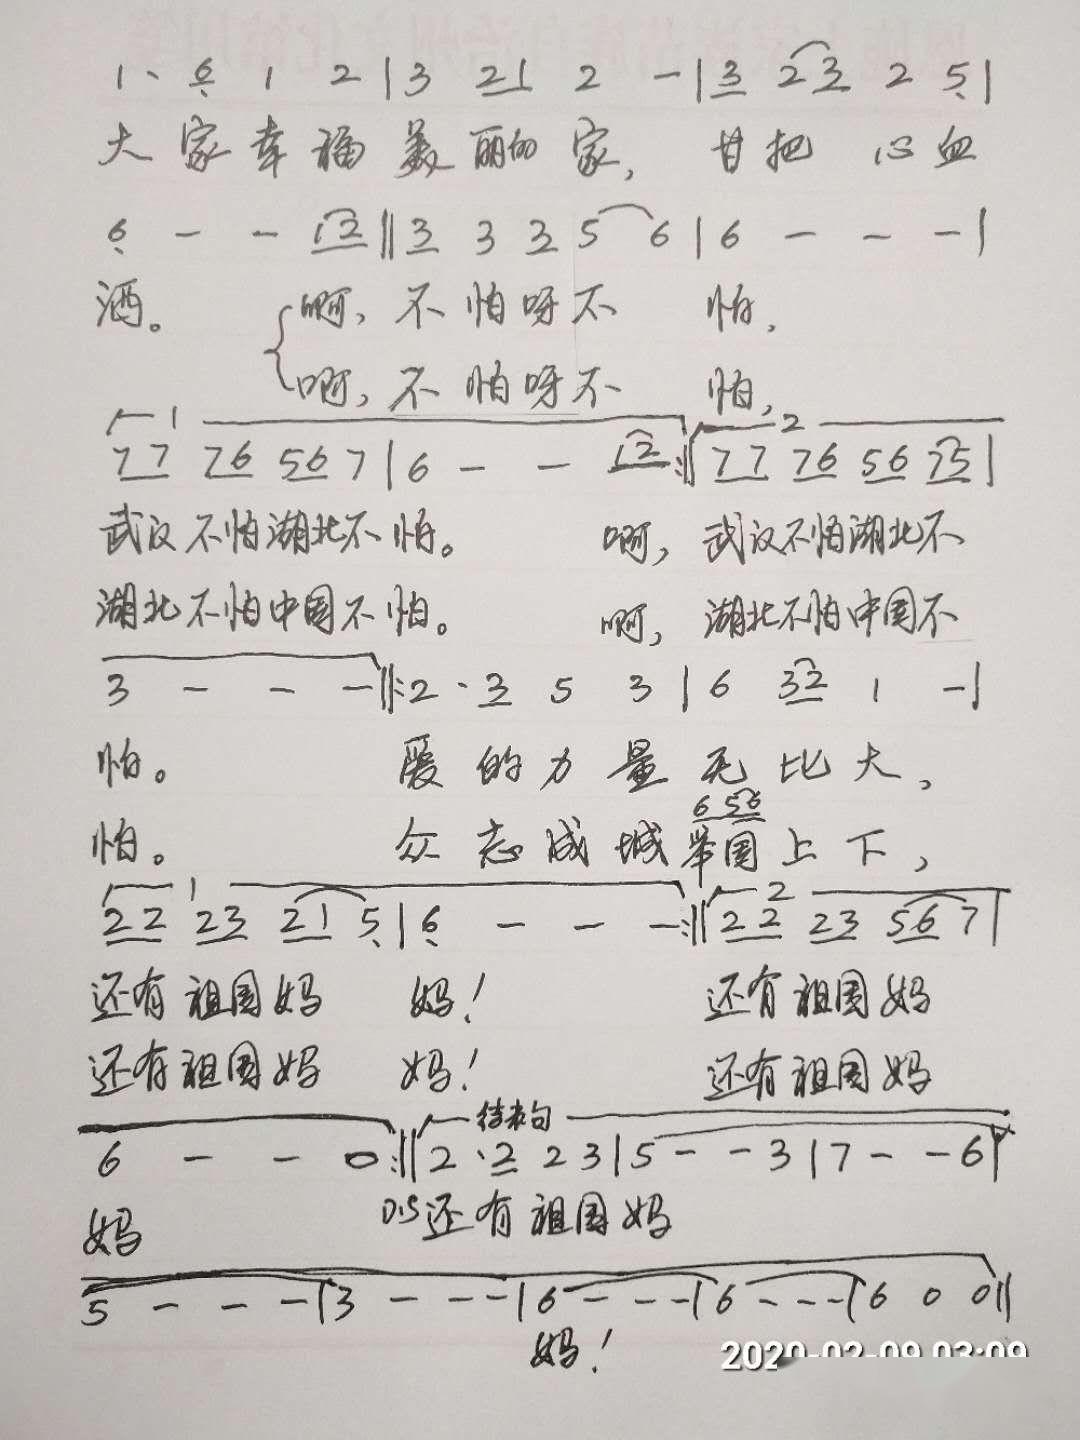 1· 6 1 2 | 3 21 2 - | 3 23 2 5 |
大家幸福美丽的家，甘把心血
6 - - 12 || 3 3 3 5 6 | 6 - - - |
洒。 啊，不怕呀不 怕，
啊，不怕呀不 怕，
1 2
77 76 56 7 | 6 - - 12 :|| 77 76 56 75 |
武汉不怕湖北不怕。 啊，武汉不怕湖北不
湖北不怕中国不怕。 啊，湖北不怕中国不
3 - - - ||: 2 · 3 5 3 | 6 32 1 - |
怕。 爱的力量无比大，
6 56
怕。 众志成城举国上下，
1 2
22 23 21 5 | 6 - - - :|| 22 23 56 7 |
还有祖国妈 妈！ 还有祖国妈
还有祖国妈 妈！ 还有祖国妈
结束句
6 - - 0 :|| 2 · 2 2 3 | 5 - - 3 | 7 - - 6 |
妈 D.S 还有祖国妈
5 - - - | 3 - - - | 6 - - - | 6 - - - | 6 0 0 ||
妈！
2020-02-09 03:09